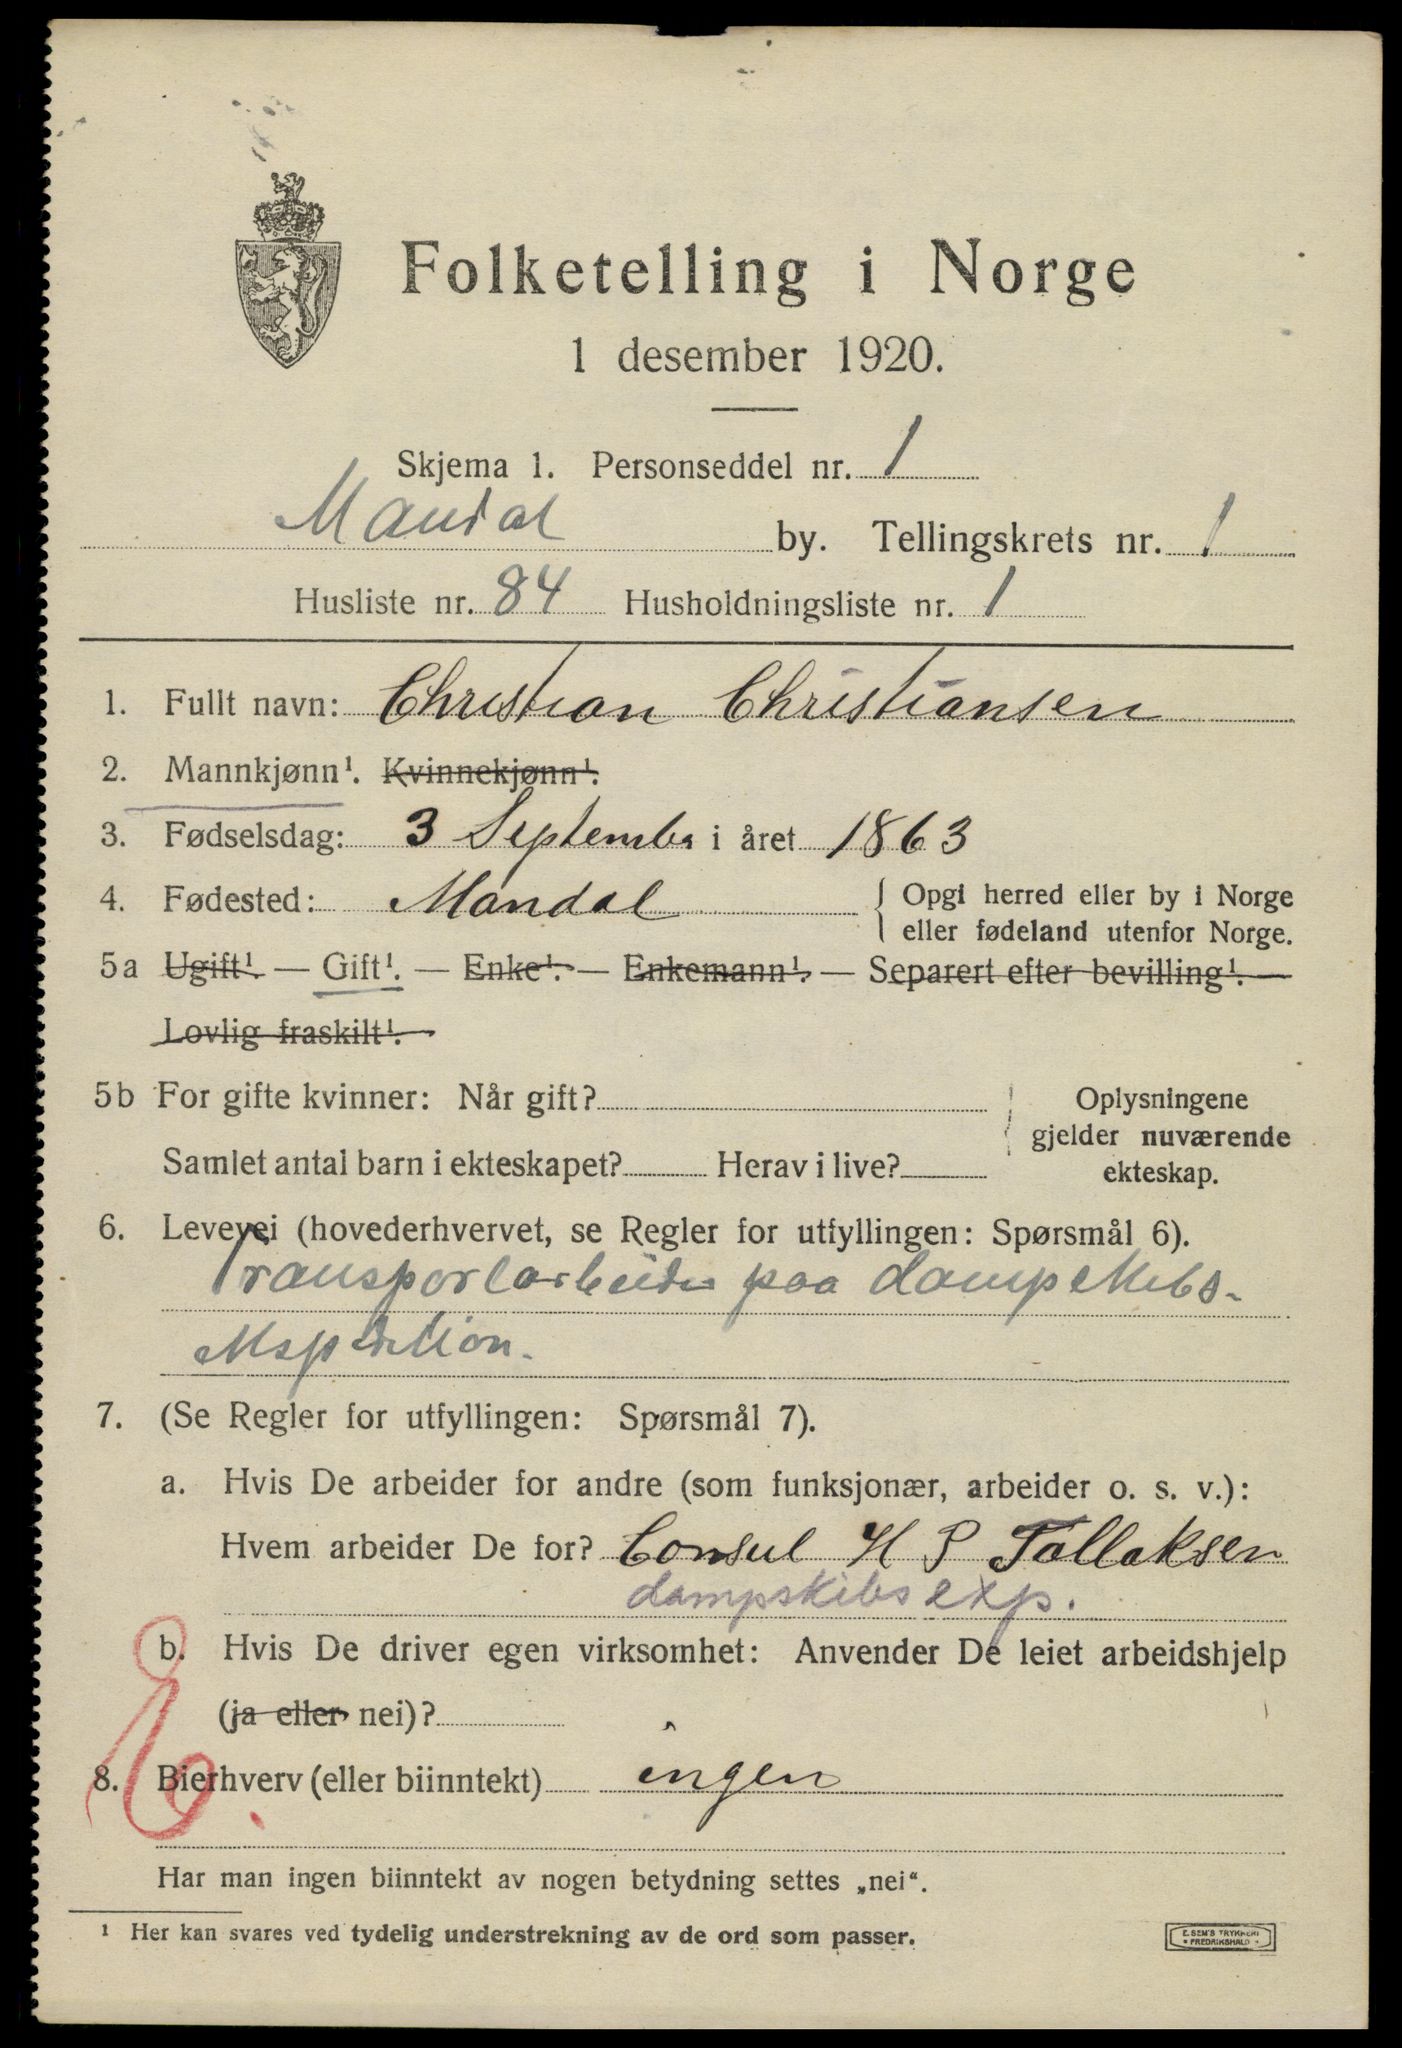 Folketelling i Norge
1 desember 1920.
Skjema 1. Personseddel nr. 1
Mandal by. Tellingskrets nr. 1
Husliste nr. 84 Husholdningsliste nr. 1
1. Fullt navn: Christian Christiansen
2. Mannkjønn¹. Kvinnekjønn¹.
3. Fødselsdag: 3 Septembr i året 1863
4. Fødested: Mandal { Opgi herred eller by i Norge
eller fødeland utenfor Norge.
5a Ugift¹. — Gift¹. — Enke¹. — Enkemann¹. — Separert efter bevilling¹. —
Lovlig fraskilt¹.
5b For gifte kvinner: Når gift? Oplysningene
gjelder nuværende
Samlet antal barn i ekteskapet? Herav i live? ekteskap.
6. Levevei (hovederhvervet, se Regler for utfyllingen: Spørsmål 6).
Transportarbeider paa dampskibs-
ekspedition.
7. (Se Regler for utfyllingen: Spørsmål 7).
a. Hvis De arbeider for andre (som funksjonær, arbeider o. s. v.):
Hvem arbeider De for? Consul H S Tallaksen
dampskibs exp.
b. Hvis De driver egen virksomhet: Anvender De leiet arbeidshjelp
(ja eller nei)?
8. Bierhverv (eller biinntekt) ingen
Har man ingen biinntekt av nogen betydning settes „nei“.
¹ Her kan svares ved tydelig understrekning av de ord som passer.
E. SEM'S TRYKKERI
FREDRIKSHALD